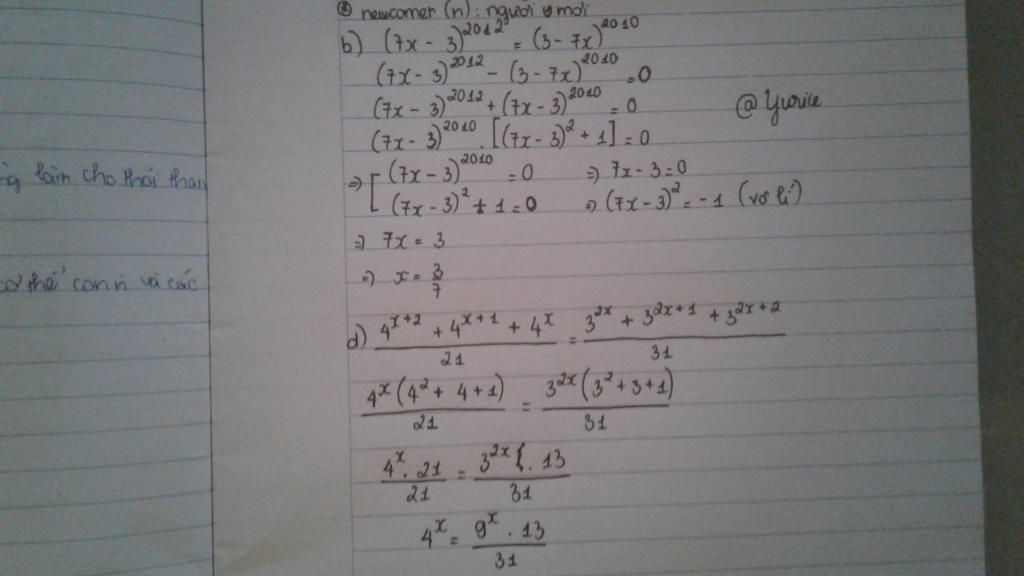 newcomer (n): người mới
b) (7x - 3)^2012 = (3 - 7x)^2010
(7x - 3)^2012 - (3 - 7x)^2010 = 0
(7x - 3)^2012 + (7x - 3)^2010 = 0
@Yuriie
(7x - 3)^2010 . [(7x - 3)^2 + 1] = 0
=> [ (7x - 3)^2010 = 0 => 7x - 3 = 0
(7x - 3)^2 + 1 = 0 => (7x - 3)^2 = -1 (vô lí)
=> 7x = 3
=> x = 3/7
d) (4^(x+2) + 4^(x+1) + 4^x)/21 = (3^(2x) + 3^(2x+1) + 3^(2x+2))/31
4^x(4^2 + 4 + 1)/21 = 3^(2x)(3^2 + 3 + 1)/31
4^x . 21/21 = 3^(2x) . 13/31
4^x = 9^x . 13/31
làm cho thời than
cơ thể con n và các